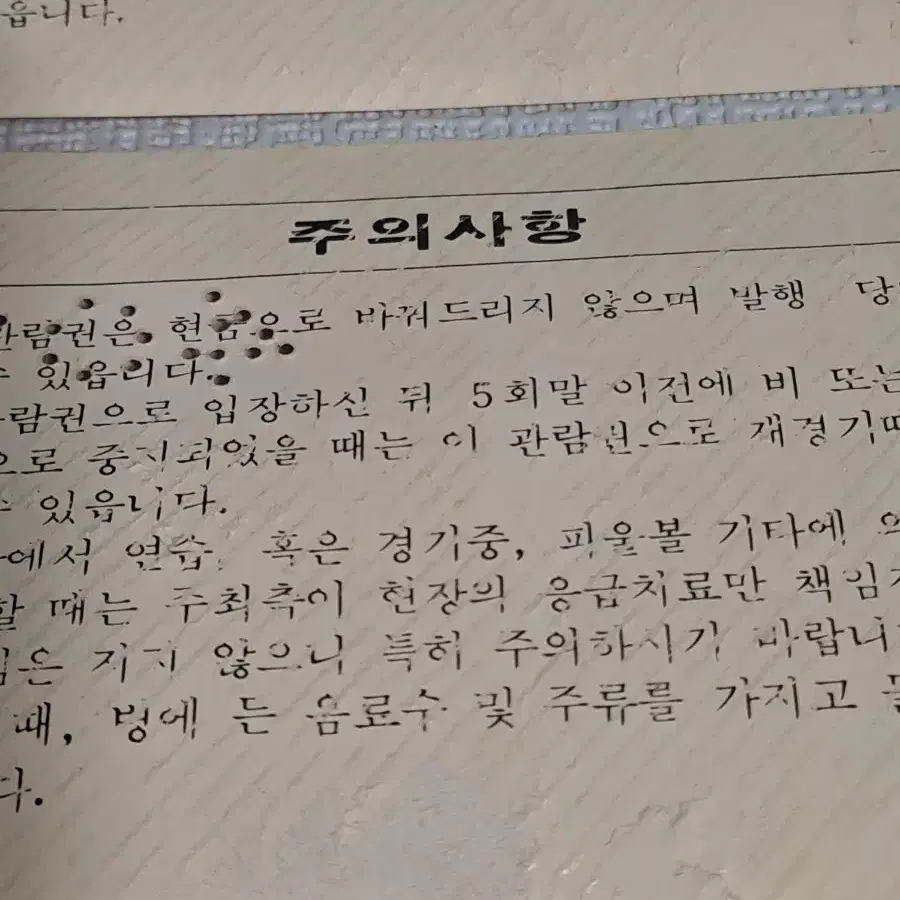 읍니다.
주의사항
관람권은 현금으로 바꿔드리지 않으며 발행 당
수 있읍니다.
람권으로 입장하신 뒤 5회말 이전에 비 또는
으로 중지되었을 때는 이 관람권으로 재경기때
수 있읍니다.
에서 연습, 혹은 경기중, 파울볼 기타에 의
할 때는 주최측이 현장의 응급치료만 책임지
임은 지지 않으니 특히 주의하시기 바랍니다
때, 병에 든 음료수 및 주류를 가지고
다.